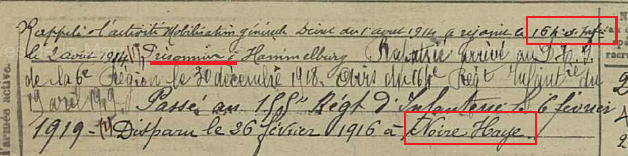 Rappelé à l'activité Mobilisation générale Décret du 1 août 1914 a rejoint le 164e d'Infie
le 2 août 1914 (1) Prisonnier à Hammelburg Rapatrié arrivé au D.
de la 6e Région le 30 décembre 1918. Régt Infanterie du
19 avril 1919 Passé au 155e Régt d'Infanterie le 6 février
1919 - (1) Disparu le 26 février 1916 à Noire Haye.
l'armée active.